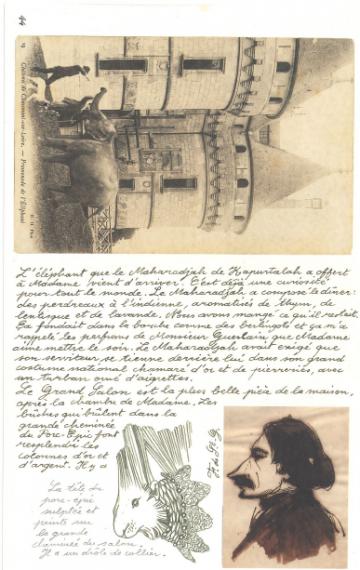 44
19 Château de Chaumont-sur-Loire. — Promenade de l'Éléphant
L'éléphant que le Maharadjah de Kapurtalah a offert
à Madame vient d'arriver. C'est déjà une curiosité
pour tout le monde. Le Maharadjah a composé le dîner :
des perdreaux à l'indienne, aromatisés de thym, de
lentisque et de lavande. Nous avons mangé ce qu'il restait.
Ça fondait dans la bouche comme des berlingots et ça m'a
rappelé les parfums de Monsieur Guerlain que Madame
aime mettre le soir. Le Maharadjah avait exigé que
son serviteur se tienne derrière lui dans son grand
costume national chamarré d'or et de pierreries, avec
un turban orné d'aigrettes.
Le Grand Salon est la plus belle pièce de la maison,
après la chambre de Madame. Les
bûches qui brûlent dans la
grande cheminée
de Porc-Epic font
resplendir les
colonnes d'or et
d'argent. Il y a
La tête du
porc-épic
sculptée et
peinte sur
la grande
cheminée du salon.
Il a un drôle de collier.